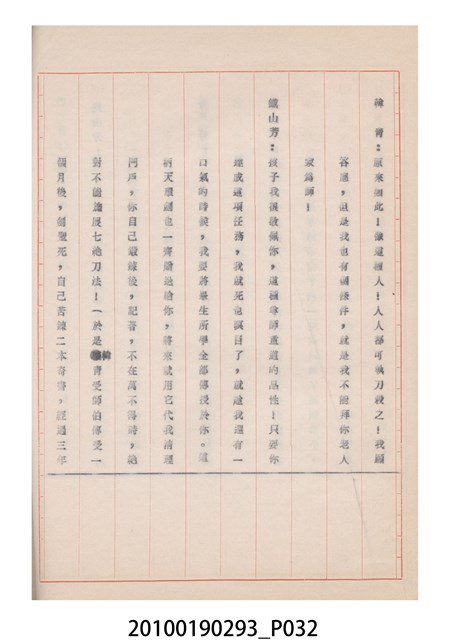 韓　青：原來如此！像這種人！人人都可執刀殺之！我願
答應，但是我也有個條件，就是我不能拜你老人
家為師！
鐵山芳：孩子我很敬佩你，這種尊師重道的品性！只要你
達成這項任務，我就死也瞑目了，就趁我還有一
口氣的時候，我要將畢生所學全部傳授於你。這
也一齊贈送給你，將來就用它代我清理
門戶，你自己鍛鍊後，記着，不在萬不得時，絕
對不能施展七絕刀法！（於是韓青受師伯傳受一
個月後，劍雙死，自己苦練二本奇書，經過三年
20100190293_P032